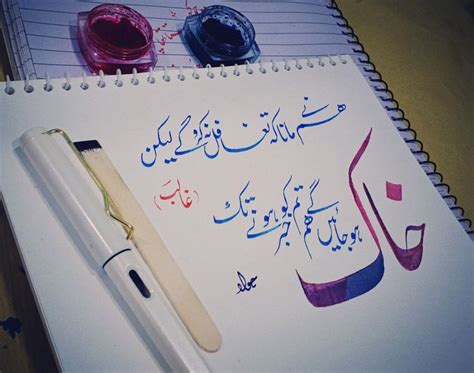 ہم نے مانا کہ تغافل نہ کرو گے لیکن
خاک ہو جائیں گے ہم تم کو خبر ہونے تک
(غالب)